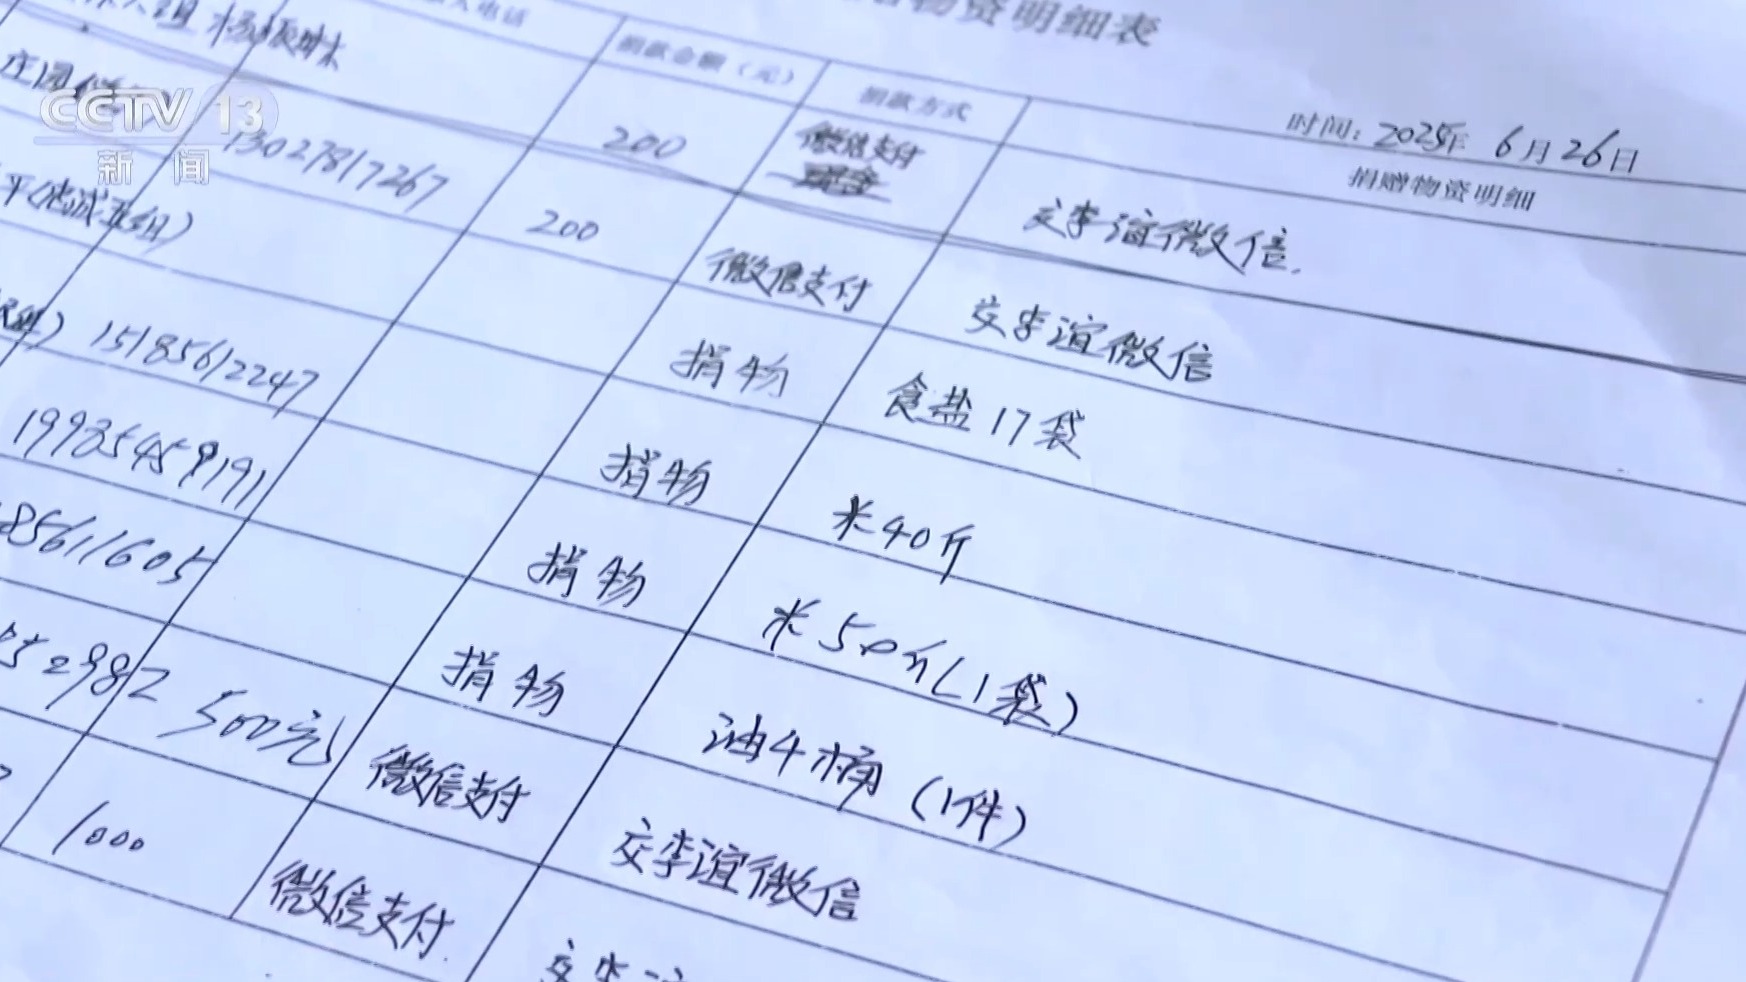 物资明细表
时间：2025年 6月26日
捐款金额（元） 捐款方式 捐赠物资明细
200 微信支付 交李谊微信.
13027817267 200 微信支付 交李谊微信
捐物 食盐17袋
15185612247 捐物 米40斤
19985459191 捐物 米50斤(1袋)
85611605 捐物 油4桶（1件）
52982 500元 微信支付 交李谊微信
1000 微信支付.
CCTV 13
新闻